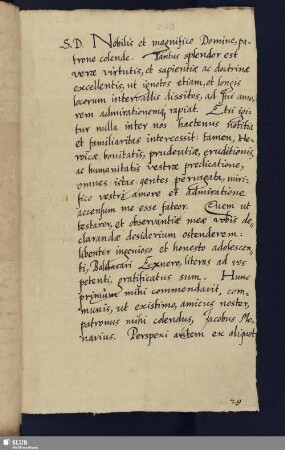 S. D. Nobilis et magnifice Domine, pa-
trone colende. Tantus splendor est
verae virtutis, et sapientiae ac doctrinae
excellentis, ut ignotos etiam, et longis
locorum intervallis dissitos, ad sui amo-
rem admirationemq rapiat. Etsi igi-
tur nulla inter nos hactenus notitia
et familiaritas intercessit: tamen, He-
roicae bonitatis, prudentiae, eruditionis,
ac humanitatis vestrae predicatione,
omnes istas gentes pervagata, miri-
fico vestri amore et admiratione
accensum me esse fateor. Quem ut
testarer, et observantiae meae vobis de-
clarandae desiderium ostenderem:
libenter ingenioso et honesto adolescen-
ti, Balthasari Exnero, literas ad vos
petenti, gratificatus sum. Hunc
mihi commendavit, com-
munis, ut existimo, amicus noster,
patronus mihi colendus, Jacobus Mo-
navius. Perspexi autem ex aliquot
SLUB